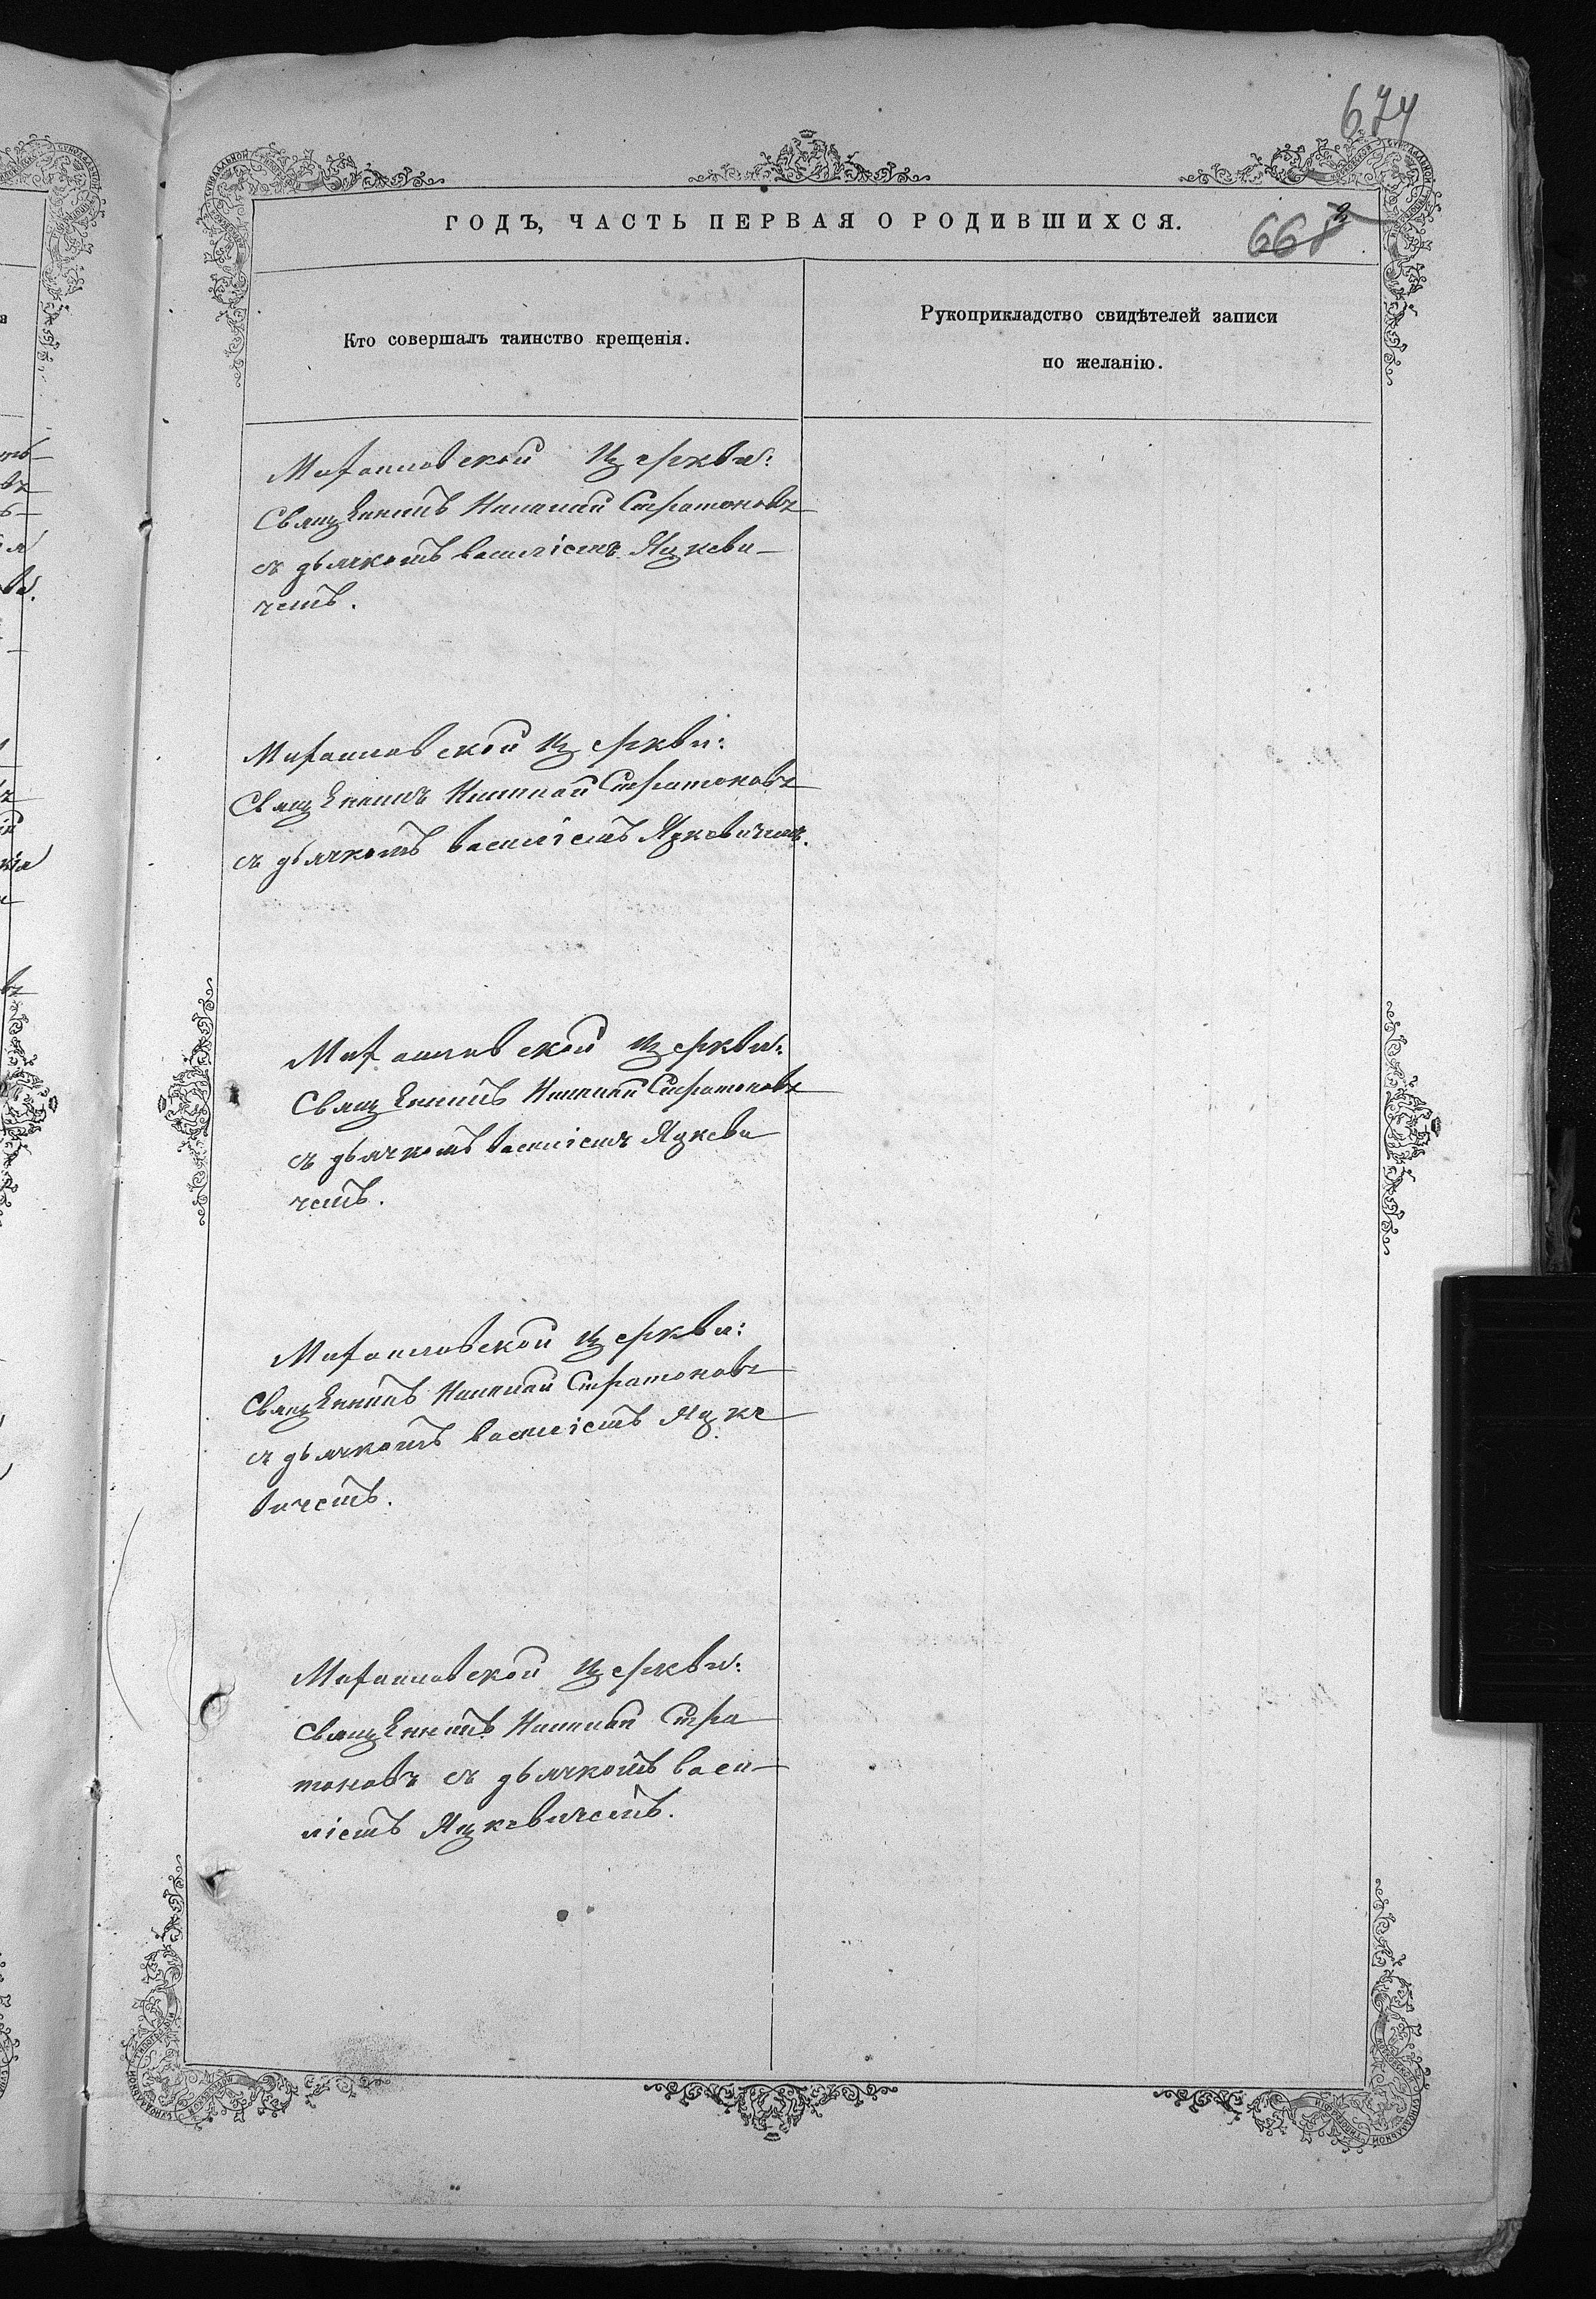 674
ГОДЪ, ЧАСТЬ ПЕРВАЯ О РОДИВШИХСЯ.
668
Кто совершалъ таинство крещенія.
Рукоприкладство свидѣтелей записи
по желанію.
Михаиловской Церкви:
Священникъ Николай Стратоновъ
съ дьячкомъ Василіемъ Яцкеви-
чемъ.
Михаиловской Церкви:
Священникъ Николай Стратоновъ
съ дьячкомъ Василіемъ Яцкевичемъ.
Михаиловской Церкви:
Священникъ Николай Стратоновъ
съ дьячкомъ Василіемъ Яцкеви
чемъ.
Михаиловской Церкви:
Священникъ Николай Стратоновъ
съ дьячкомъ Василіемъ Яцке
вичемъ.
Михаиловской Церкви:
Священникъ Николай Стра
тоновъ съ дьячкомъ Васи-
ліемъ Яцкевичемъ.